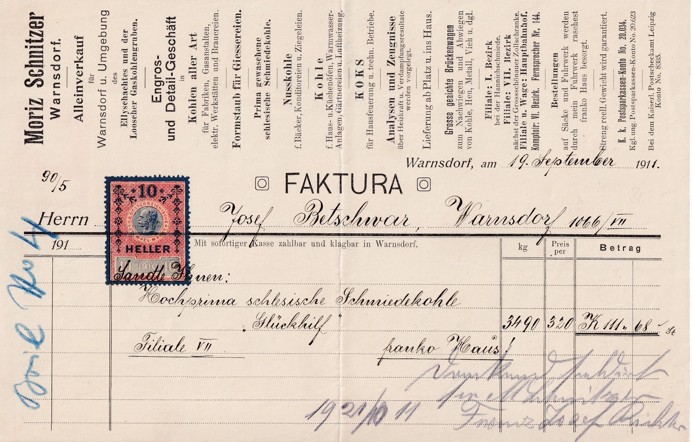 Moriz Schnitzer
Warnsdorf.
Alleinverkauf
für
Warnsdorf u. Umgebung
des
Ellyschachtes und der
Looscher Gaskohlengruben.
Engros-
und Detail-Geschäft
in
Kohlen aller Art
für Fabriken, Gasanstalten,
elektr. Werkstätten und Brauereien.
Formstaub für Giessereien.
Prima gewaschene
schlesische Schmiedekohle.
Nusskohle
f. Bäcker, Konditoreien u. Ziegeleien.
Kohle
f. Haus- u. Küchenöfen, Warmwasser-
Anlagen, Gärtnereien u. Luftheizung.
KOKS
für Hausfeuerung u. techn. Betriebe.
Analysen und Zeugnisse
über Heizkraft u. Verdampfungsresultate
werden vorgelegt.
Lieferung ab Platz u. ins Haus.
Grosse geaichte Brückenwagen
zum Nachwiegen und Abwiegen
von Kohle, Heu, Metall, Vieh u. dgl.
Filiale: I. Bezirk
bei der Hammichschmiede.
Filiale: VII. Bezirk
nächst der Grossschönauer Zollschranke.
Filiale u. Wage: Hauptbahnhof.
Komptoir: VI. Bezirk. Fernsprecher Nr. 144.
Bestellungen
auf Säcke und Fuhrwerk werden
durch mein Fuhrwerk raschest
franko Haus besorgt.
Streng reell. Gewicht wird garantiert.
K. k. Postsparkassen-Konto No. 20.034.
Kgl. ung. Postsparkassen-Konto No. 20.023
Bei dem Kaiserl. Postscheckamt Leipzig
Konto No. 8335.
Warnsdorf, am 19. September 1911.
90/5
FAKTURA
Herrn Josef Betschwar, Warnsdorf 1066/VII
191
10
HELLER
Mit sofortiger Kasse zahlbar und klagbar in Warnsdorf.
kg
Preis per
Betrag
Sandte Ihnen:
Hochprima schlesische Schmiedekohle
"Glückhilf" 3490 320 K 111 - 68 -
Filiale VII franko Haus!
Dankend
Franz Josef Richter